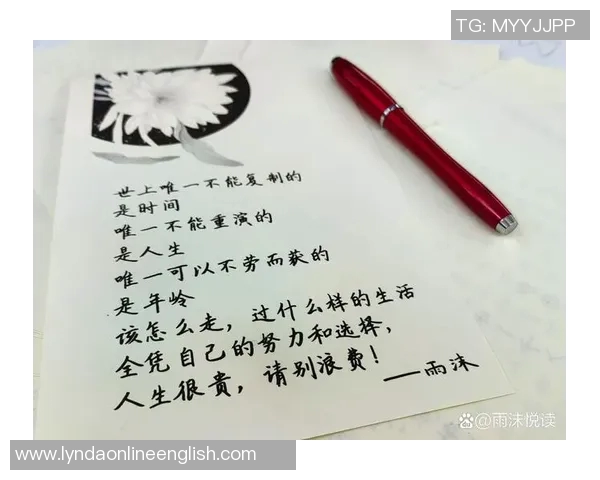 TG: MYYJJPP
世上唯一不能复制的
是时间
唯一不能重演的
是人生
唯一可以不劳而获的
是年龄
该怎么走，过什么样的生活
全凭自己的努力和选择，
人生很贵，请别浪费！
——雨沫
@雨沫悦读
www.lyndaonlineenglish.com